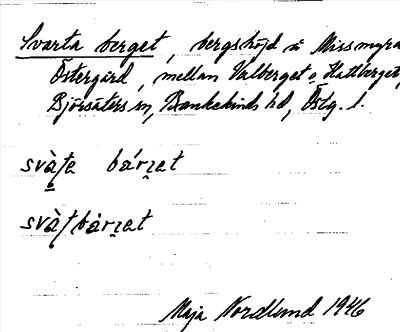 Svarta berget, bergshöjd å Missmyra
Östergård, mellan Valberget o. Hattberget,
Björsäters sn, Bankekinds hd, Östg. l.
svàṭe bárʐet
svàṭbàrʐet
Maja Nordlund 1946